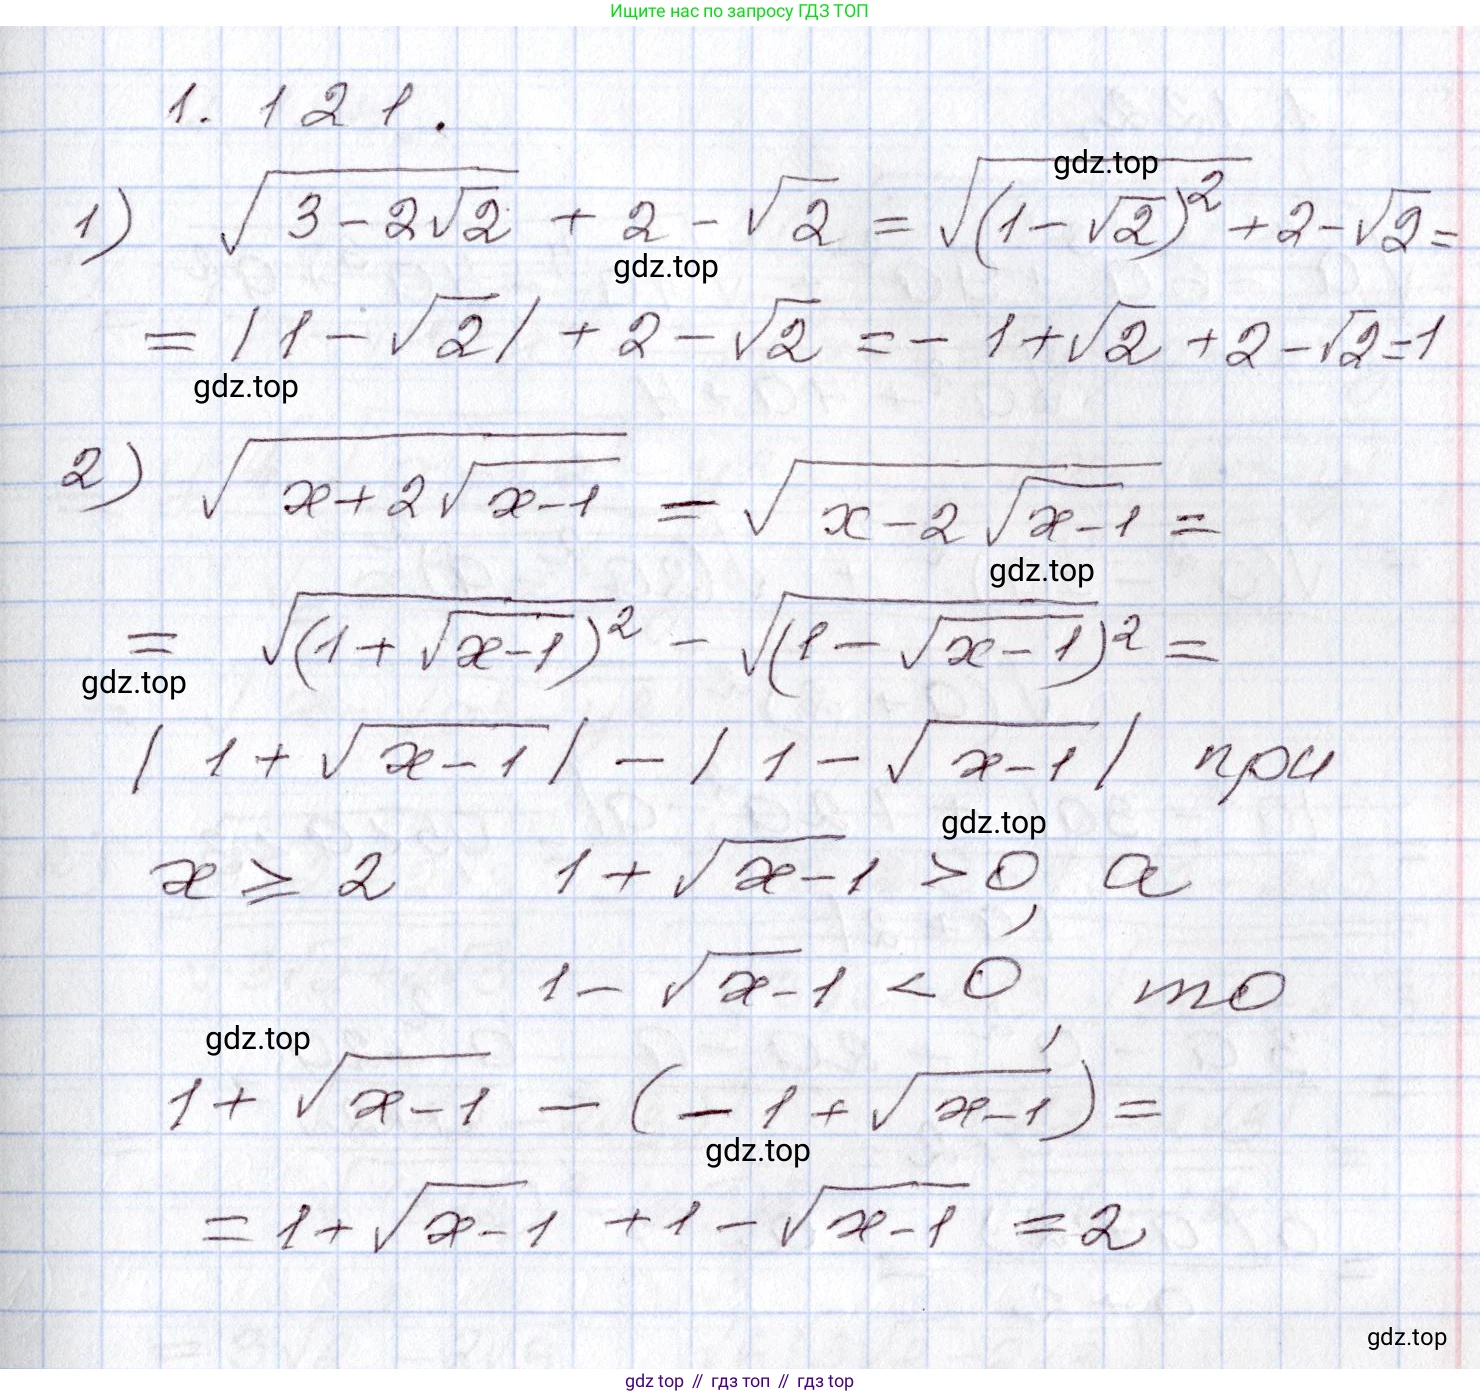 Ищите нас по запросу ГДЗ ТОП
1.121.
gdz.top
1) √(3-2√2) + 2 - √2 = √((1-√2)²) + 2 - √2 =
gdz.top
= |1-√2| + 2 - √2 = -1+√2 + 2 - √2 = 1
gdz.top
2) √(x+2√(x-1)) = √(x-2√(x-1)) =
gdz.top
= √((1+√(x-1))²) - √((1-√(x-1))²) =
gdz.top
|1+√(x-1)| - |1-√(x-1)| при
gdz.top
x ⩾ 2 1+√x-1 > 0, а
1-√x-1 < 0, то
gdz.top
1+√(x-1) - (-1+√(x-1)) =
gdz.top
= 1+√x-1 + 1-√(x-1) = 2
gdz.top
gdz top // гдз топ // гдз top